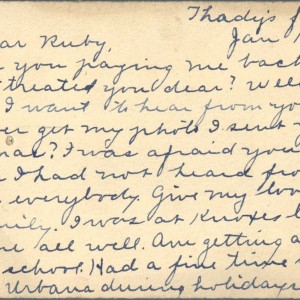 Thadys f
ar Ruby, Jan 1
you paying me back
treated you dear? Well
I want to hear from yo
er get my photo I sent y
mas? I was afraid you
I had not heard fro
everybody. Give my lov
mily. I was at Knoxes l
re all well. Am getting a
school. Had a fine time
Urbana during holidays